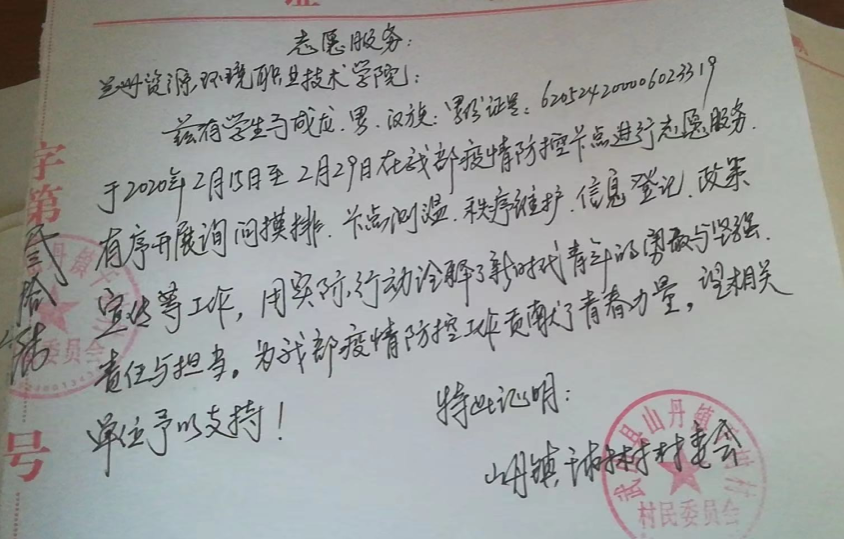 志愿服务:
兰州资源环境职业技术学院:
兹有学生于成龙.男.汉族:身份证号:620524200006023319
于2020年2月15日至2月29日在我部疫情防控卡点进行志愿服务.
有序开展询问摸排.卡点测温.秩序维护.信息登记.政策
宣传等工作,用实际行动诠释了新时代青年的勇敢与坚强.
责任与担当。为我部疫情防控工作贡献了青春力量。望相关
单位予以支持!
特此证明:
山丹镇 村村委会
字第
贰拾陆
号
山丹镇
村民委员会
委员会